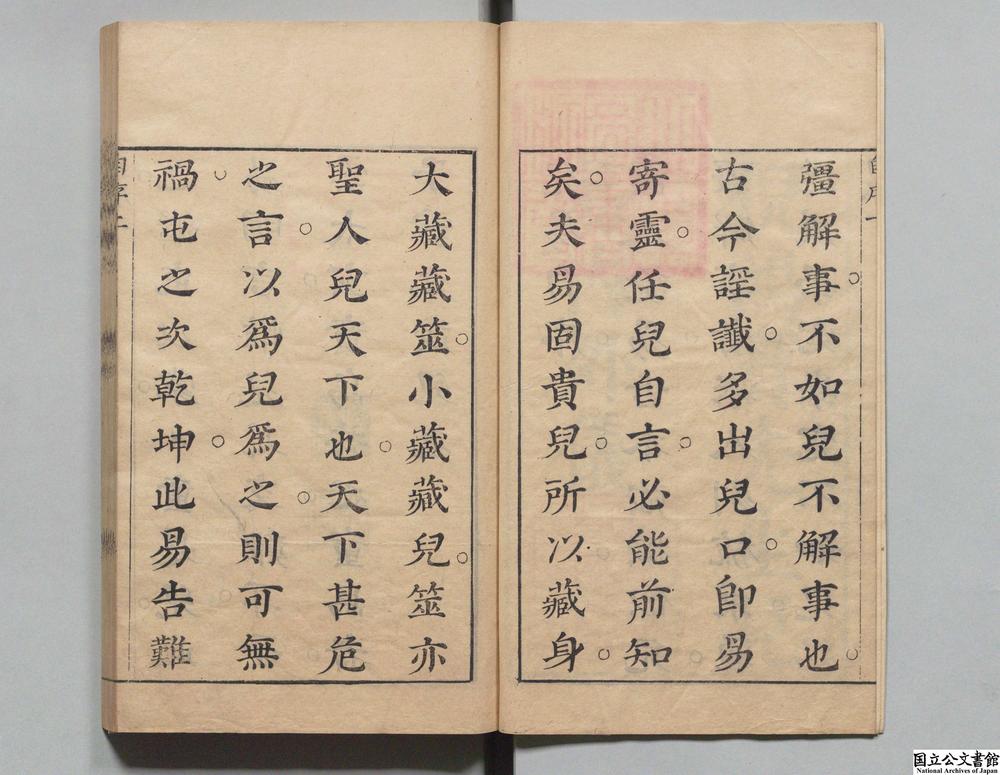 彊解事不如兒不解事也
古今謡讖多出兒口卽易
寄靈任兒自言必能前知
矣夫易固貴兒所以藏身
大藏藏筮小藏藏兒筮亦
聖人兒天下也天下甚危
之言以爲兒爲之則可無
禍屯之次乾坤此易告難
自序二
国立公文書館
National Archives of Japan